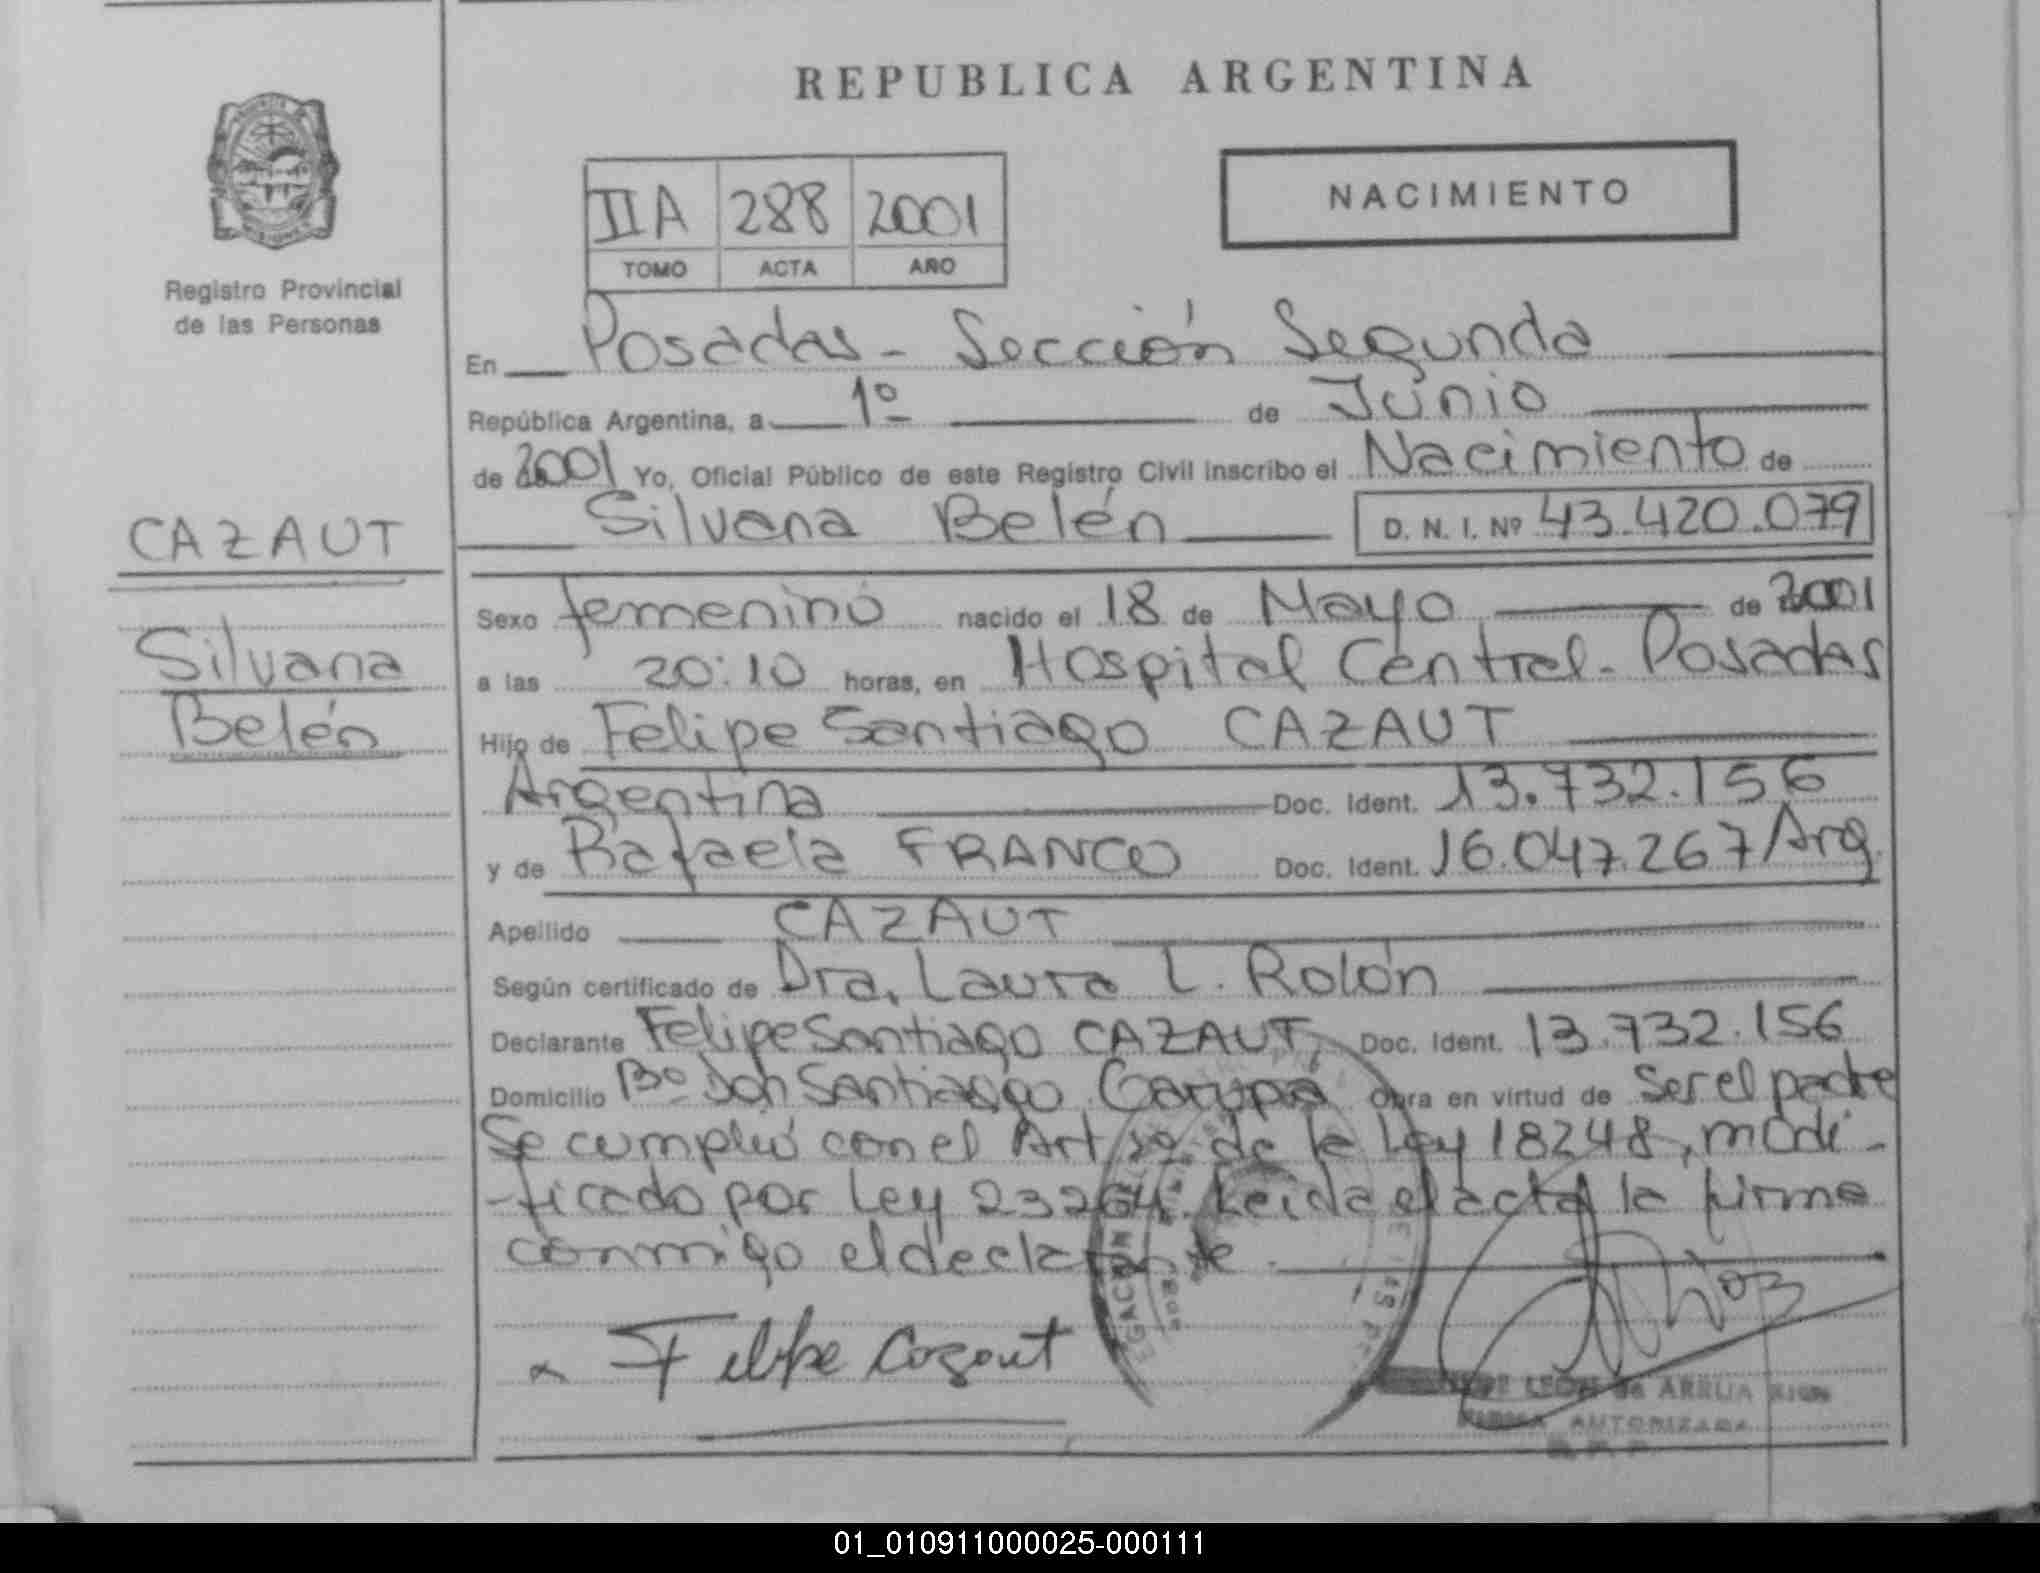 REPUBLICA ARGENTINA
NACIMIENTO
IIA 288 2001
TOMO ACTA AÑO
Registro Provincial
de las Personas
CAZAUT
Silvana
Belén
En Posadas - Sección Segunda
República Argentina, a 1º de Junio
de 2001 Yo, Oficial Público de este Registro Civil inscribo el Nacimiento de
Silvana Belén D. N. I. Nº 43.420.079
Sexo femenino nacido el 18 de Mayo de 2001
a las 20:10 horas, en Hospital Central - Posadas
Hijo de Felipe Santiago CAZAUT
Argentina Doc. Ident. 13.732.156
y de Rafaela FRANCO Doc. Ident. 16.047.267/Arg.
Apellido CAZAUT
Según certificado de Dra. Laura L. Rolón
Declarante Felipe Santiago CAZAUT, Doc. Ident. 13.732.156
Domicilio Bº Don Santiago Garupá Obra en virtud de ser el padre
Se cumplió con el Art de la Ley 18248, modi-
-ficado por Ley 23264. Leida el acta la firma
conmigo el declarante.
Felipe Cazaut
LEON de ARRUA
FIRMA AUTORIZADA
01_010911000025-000111